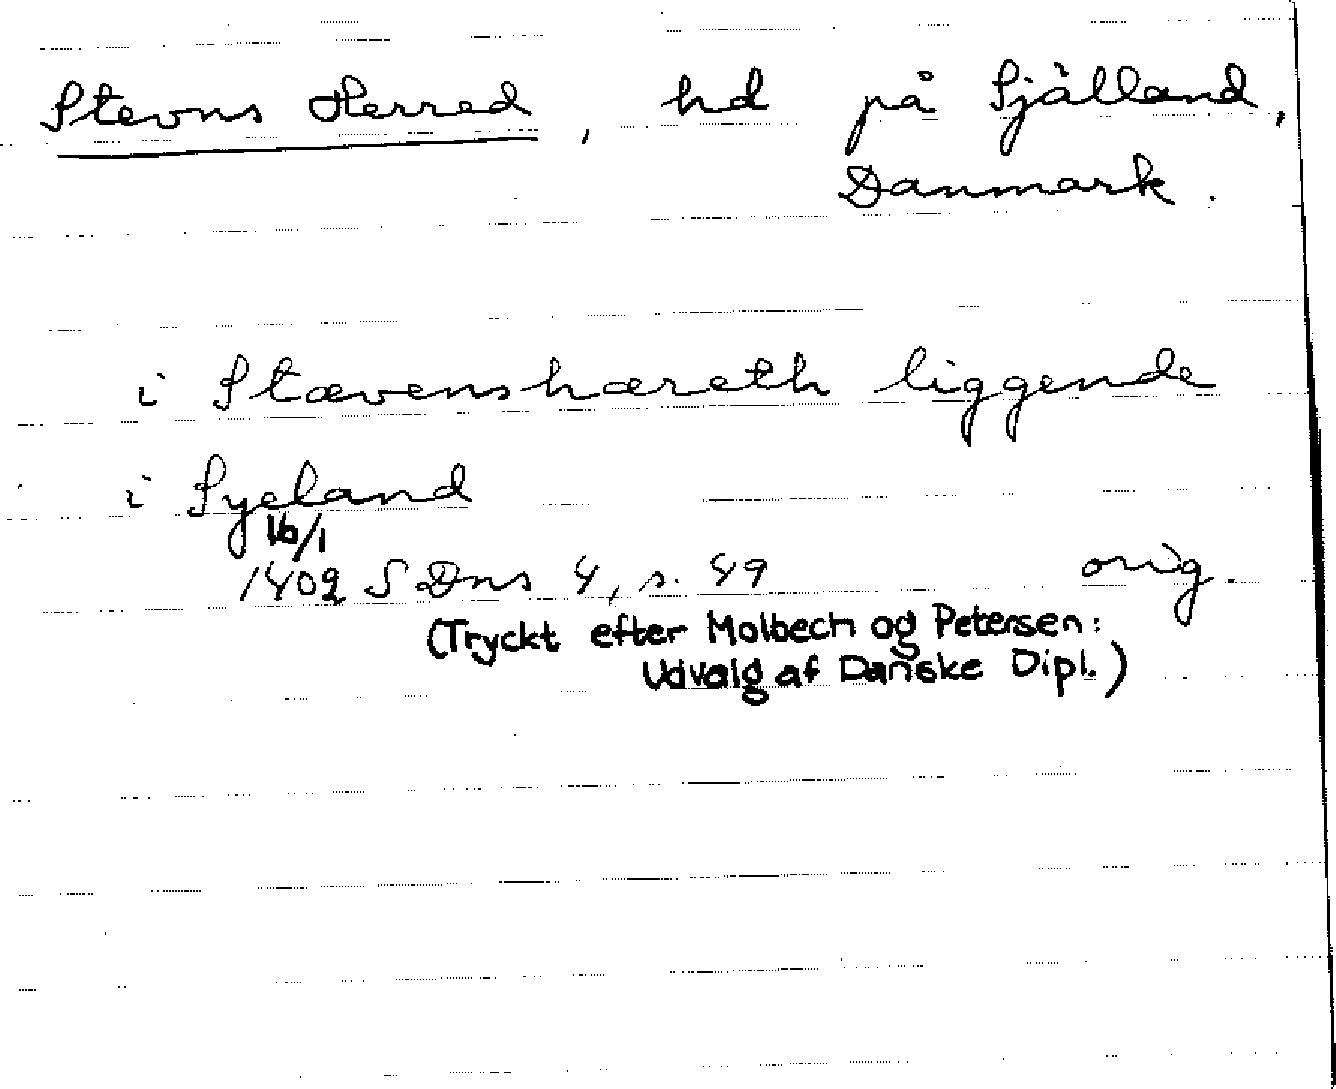 Stevns Herred, hd på Själland,
Danmark.
i Stævenshæreth liggende
i Syeland
16/1
1409 SDns 4, s. 49 orig.
(Tryckt efter Molbech og Petersen:
Udvalg af Danske Dipl.)